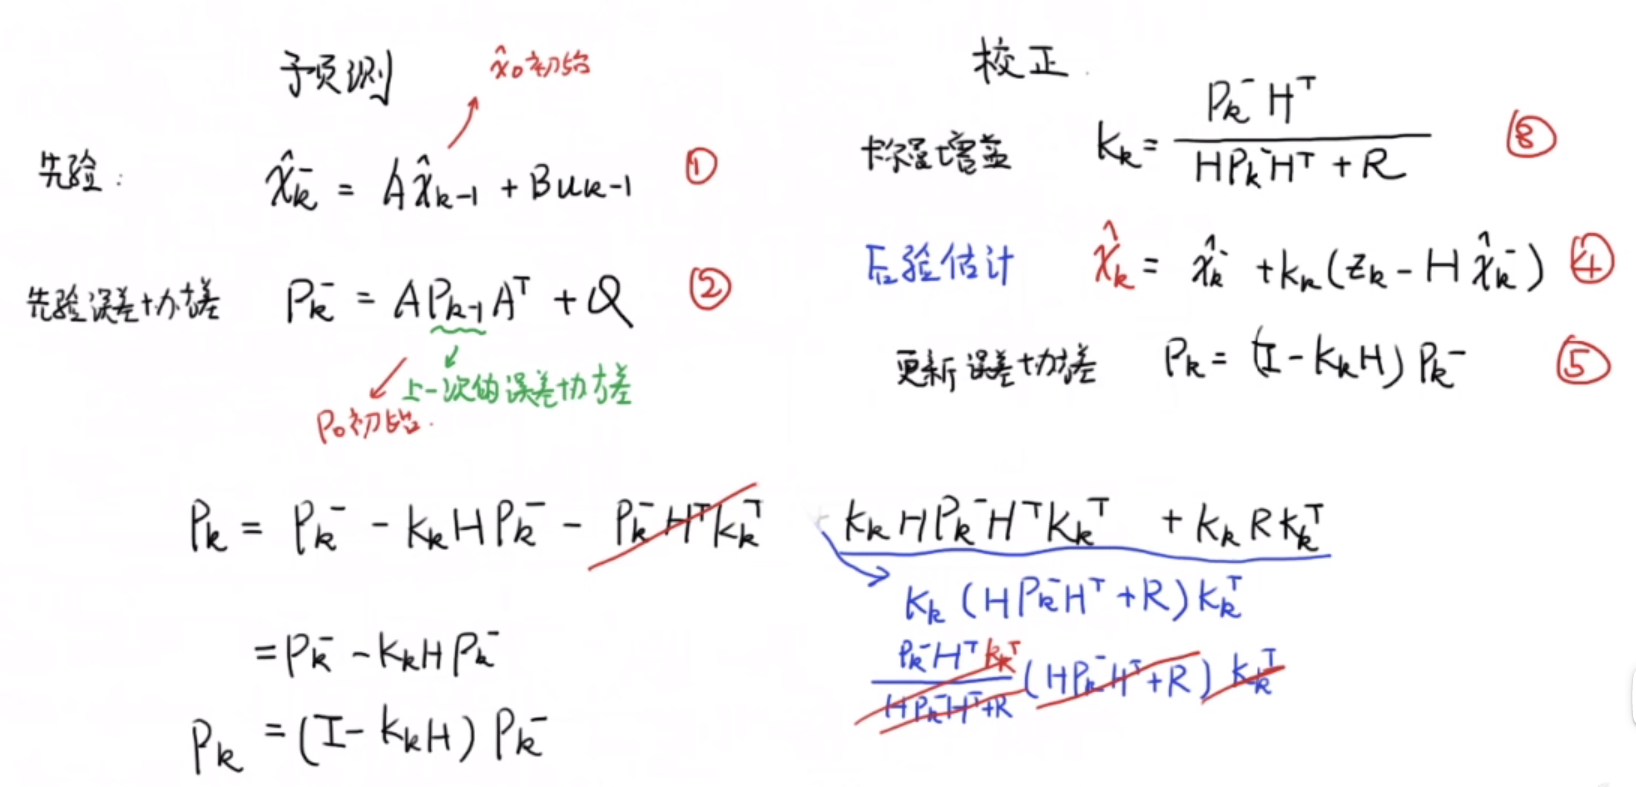 予页测
x̂₀初始
先验：
x̂ₖ⁻ = Ax̂ₖ₋₁ + Buₖ₋₁ ①
先验误差协方差 Pₖ⁻ = APₖ₋₁Aᵀ + Q ②
上一次的误差协方差
P₀初始.
校正
卡尔曼增益 Kₖ = Pₖ⁻Hᵀ / HPₖ⁻Hᵀ + R ③
后验估计 x̂ₖ = x̂ₖ⁻ + Kₖ(zₖ - Hx̂ₖ⁻) ④
更新误差协方差 Pₖ = (I - KₖH)Pₖ⁻ ⑤
Pₖ = Pₖ⁻ - KₖHPₖ⁻ - Pₖ⁻HᵀKₖᵀ KₖHPₖ⁻HᵀKₖᵀ + KₖRKₖᵀ
Kₖ(HPₖ⁻Hᵀ + R)Kₖᵀ
Pₖ⁻HᵀKₖᵀ / HPₖ⁻Hᵀ+R (HPₖ⁻Hᵀ+R) Kₖᵀ
= Pₖ⁻ - KₖHPₖ⁻
Pₖ = (I - KₖH)Pₖ⁻